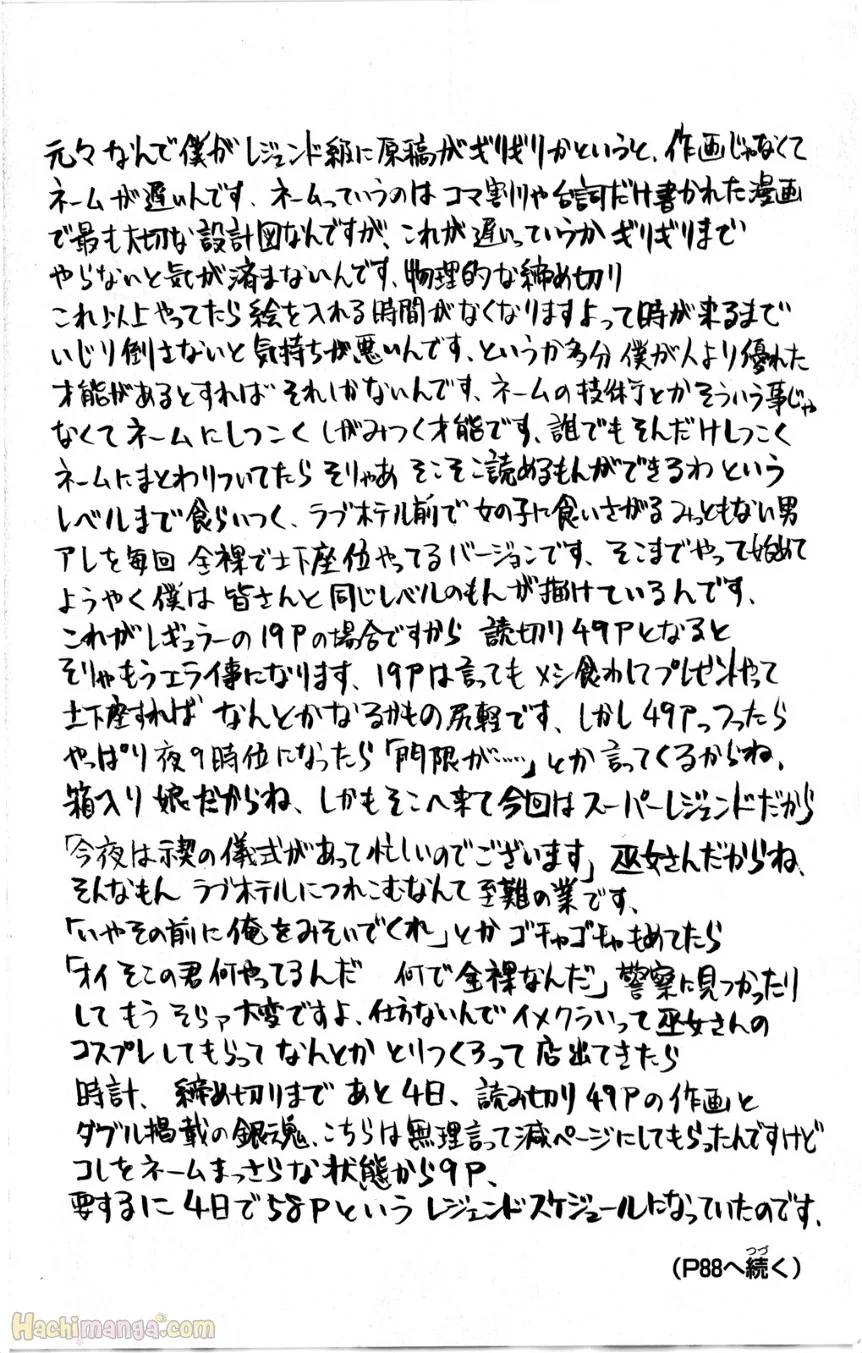 元々なんで僕がレジェンド級に原稿がギリギリかというと、作画じゃなくて
ネームが遅いんです、ネームっていうのはコマ割りや台詞だけ書かれた漫画
で最も大切な設計図なんですが、これが遅いっていうかギリギリまで
やらないと気が済まないんです、物理的な締め切り
これ以上やってたら絵を入れる時間がなくなりますよって時が来るまで
いじり倒さないと気持ちが悪いんです、というか多分僕が人より優れた
才能があるとすればそれしかないんです、ネームの技術とかそういう事じゃ
なくてネームにしつこくしがみつく才能です、誰でもそんだけしつこく
ネームにまとわりついてたらそりゃあそこそこ読めるもんができるわという
レベルまで食らいつく、ラブホテル前で女の子に食いさがるみっともない男
アレを毎回全裸で土下座位やってるバージョンです、そこまでやって始めて
ようやく僕は皆さんと同じレベルのもんが描けているんです、
これがレギュラーの19Pの場合ですから読切り49Pとなると
そりゃもうエライ事になります、19Pは言ってもメシ食わしてプレゼントやって
土下座すればなんとかなるかもの尻軽です、しかし49Pっつったら
やっぱり夜9時位になったら「門限が……」とか言ってくるからね、
箱入り娘だからね、しかもそこへ来て今回はスーパーレジェンドだから
「今夜は禊の儀式があって忙しいのでございます」巫女さんだからね、
そんなもんラブホテルにつれこむなんて至難の業です、
「いやその前に俺をみそいでくれ」とかゴチャゴチャもめてたら
「オイそこの君何やってるんだ 何で全裸なんだ」警察に見つかったり
してもうそらァ大変ですよ、仕方ないんでイメクラいって巫女さんの
コスプレしてもらってなんとかとりつくろって店出てきたら
時計、締め切りまであと4日、読み切り49Pの作画と
ダブル掲載の銀魂、こちらは無理言って減ページにしてもらったんですけど
コレをネームまっさらな状態から9P、
要するに4日で58Pというレジェンドスケジュールになっていたのです、
(P88へ続く)
つづ
Hachimanga.com